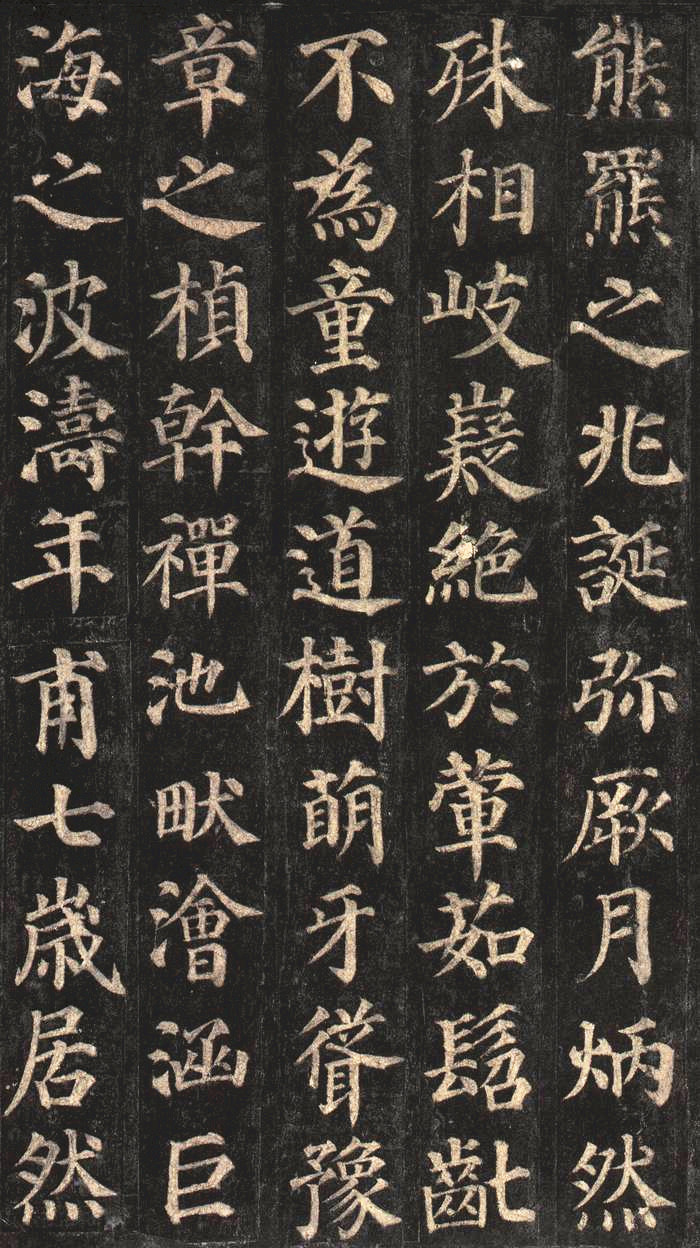 熊羆之兆誕弥厥月炳然
殊相岐嶷絶於葷茹髫齔
不為童遊道樹萌牙聳豫
章之楨幹禪池畎澮涵巨
海之波濤年甫七歳居然